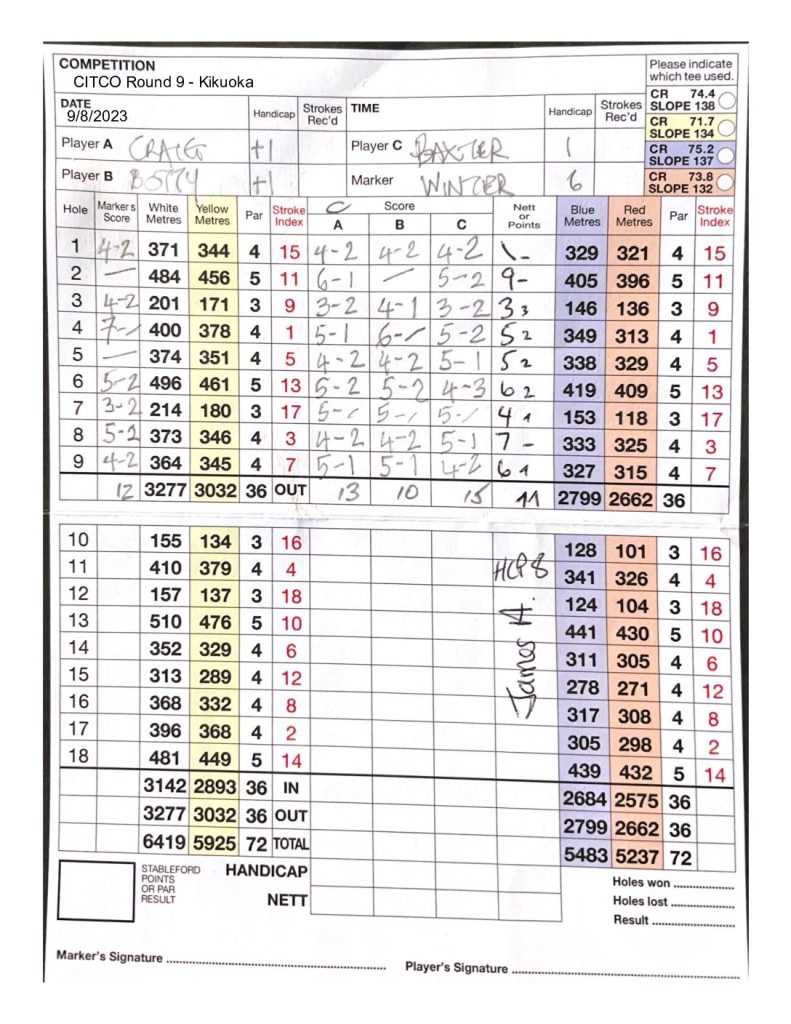 COMPETITION
CITCO Round 9 - Kikuoka
Please indicate which tee used.
CR 74.4 SLOPE 138
CR 71.7 SLOPE 134
CR 75.2 SLOPE 137
CR 73.8 SLOPE 132
DATE 9/8/2023 Handicap Strokes Rec'd TIME Handicap Strokes Rec'd
Player A CRAIG +1 Player C BAXTER 1
Player B BOTTY +1 Marker WINTER 6
Hole Marker's Score White Metres Yellow Metres Par Stroke Index Score A B C Nett or Points Blue Metres Red Metres Par Stroke Index
1 4-2 371 344 4 15 4-2 4-2 4-2 \- 329 321 4 15
2 — 484 456 5 11 6-1 — 5-2 9- 405 396 5 11
3 4-2 201 171 3 9 3-2 4-1 3-2 3 3 146 136 3 9
4 7-/ 400 378 4 1 5-1 6-/ 5-2 5 2 349 313 4 1
5 — 374 351 4 5 4-2 4-2 5-1 5 2 338 329 4 5
6 5-2 496 461 5 13 5-2 5-2 4-3 6 2 419 409 5 13
7 3-2 214 180 3 17 5-/ 5-/ 5-/ 4 1 153 118 3 17
8 5-2 373 346 4 3 4-2 4-2 5-1 7 - 333 325 4 3
9 4-2 364 345 4 7 5-1 5-1 4-2 6 1 327 315 4 7
12 3277 3032 36 OUT 13 10 15 11 2799 2662 36
10 155 134 3 16 128 101 3 16
11 410 379 4 4 HCP 8 341 326 4 4
12 157 137 3 18 124 104 3 18
13 510 476 5 10 441 430 5 10
14 352 329 4 6 James H. 311 305 4 6
15 313 289 4 12 278 271 4 12
16 368 332 4 8 317 308 4 8
17 396 368 4 2 305 298 4 2
18 481 449 5 14 439 432 5 14
3142 2893 36 IN 2684 2575 36
3277 3032 36 OUT 2799 2662 36
6419 5925 72 TOTAL 5483 5237 72
STABLEFORD POINTS OR PAR RESULT
HANDICAP
NETT
Holes won
Holes lost
Result
Marker's Signature
Player's Signature